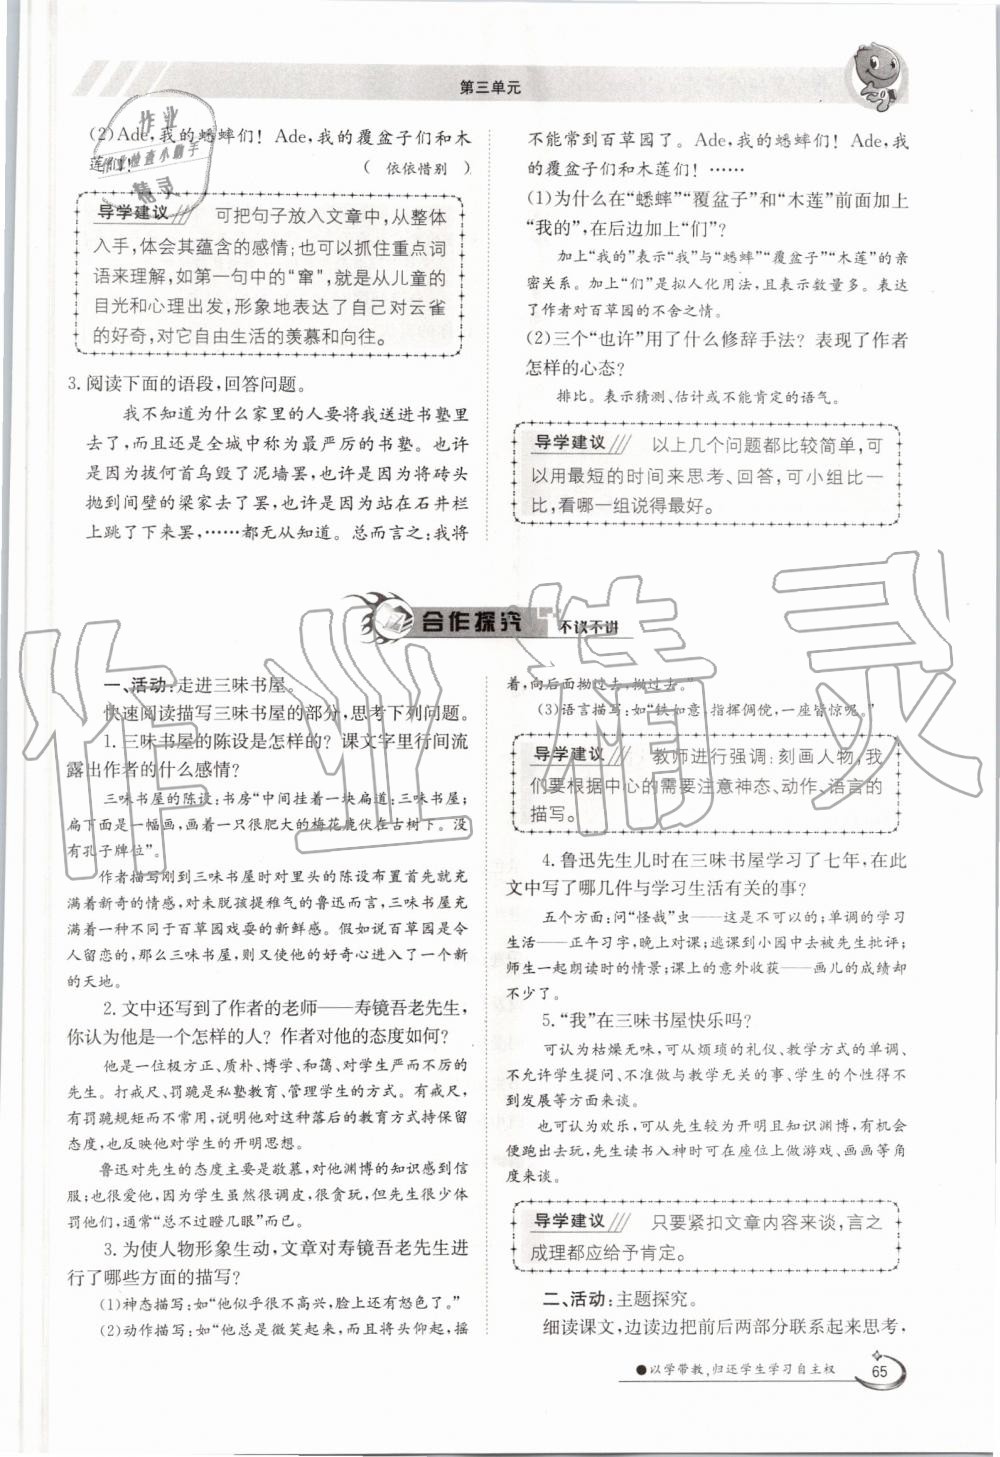 第三单元
(2)Ade,我的蟋蟀们！Ade,我的覆盆子们和木
莲们！
( 依依惜别 )
导学建议 可把句子放入文章中,从整体
入手,体会其蕴含的感情;也可以抓住重点词
语来理解,如第一句中的“窜”,就是从儿童的
目光和心理出发,形象地表达了自己对云雀
的好奇,对它自由生活的羡慕和向往。
3.阅读下面的语段,回答问题。
我不知道为什么家里的人要将我送进书塾里
去了,而且还是全城中称为最严厉的书塾。也许
是因为拔何首乌毁了泥墙罢,也许是因为将砖头
抛到间壁的梁家去了罢,也许是因为站在石井栏
上跳了下来罢,……都无从知道。总而言之:我将
不能常到百草园了。Ade,我的蟋蟀们！Ade,
我的覆盆子们和木莲们！……
(1)为什么在“蟋蟀”“覆盆子”和“木莲”前面加上
“我的”,在后边加上“们”?
加上“我的”表示“我”与“蟋蟀”“覆盆子”“木莲”的亲
密关系。加上“们”是拟人化用法,且表示数量多。表达
了作者对百草园的不舍之情。
(2)三个“也许”用了什么修辞手法? 表现了作者
怎样的心态?
排比。表示猜测、估计或不能肯定的语气。
导学建议 以上几个问题都比较简单,可
以用最短的时间来思考、回答,可小组比一
比,看哪一组说得最好。
合作探究 不议不讲
一、活动:走进三味书屋。
快速阅读描写三味书屋的部分,思考下列问题。
1.三味书屋的陈设是怎样的? 课文字里行间流
露出作者的什么感情?
三味书屋的陈设:书房“中间挂着一块扁道:三味书屋;
扁下面是一幅画,画着一只很肥大的梅花鹿伏在古树下。没
有孔子牌位”。
作者描写刚到三味书屋时对里头的陈设布置首先就充
满着新奇的情感,对未脱孩提稚气的鲁迅而言,三味书屋充
满着一种不同于百草园戏耍的新鲜感。假如说百草园是令
人留恋的,那么三味书屋,则使他的好奇心进入了一个新
的天地。
2.文中还写到了作者的老师——寿镜吾老先生,
你认为他是一个怎样的人? 作者对他的态度如何?
他是一位极方正、质朴、博学、和蔼、对学生严而不厉
的先生。打戒尺、罚跪是私塾教育、管理学生的方式。有戒尺、
有罚跪规矩而不常用,说明他对这种落后的教育方式持保留
态度,也反映他对学生的开明思想。
鲁迅对先生的态度主要是敬慕,对他渊博的知识感到信
服;也很爱他,因为学生虽然很调皮,很贪玩,但先生很少体
罚他们,通常“总不过瞪几眼”而已。
3.为使人物形象生动,文章对寿镜吾老先生进
行了哪些方面的描写?
(1)神态描写:如“他似乎很不高兴,脸上还有怒色了。”
(2)动作描写:如“他总是微笑起来,而且将头仰起,摇
着,向后面拗过去,拗过去。”
(3)语言描写:如“铁如意,指挥倜傥,一座皆惊呢。”
导学建议 教师进行强调:刻画人物,我
们要根据中心的需要注意神态、动作、语言的
描写。
4.鲁迅先生儿时在三味书屋学习了七年,在此
文中写了哪几件与学习生活有关的事?
五个方面:问“怪哉”虫——这是不可以的;单调的学习
生活——正午习字,晚上对课;逃课到小园中去被先生批评;
师生一起朗读时的情景;课上的意外收获——画儿的成绩却
不少了。
5.“我”在三味书屋快乐吗?
可认为枯燥无味,可从烦琐的礼仪、教学方式的单调、
不允许学生提问、不准做与教学无关的事、学生的个性得不
到发展等方面来谈。
也可认为欢乐,可从先生较为开明且知识渊博,有机会
便跑出去玩,先生读书入神时可在座位上做游戏、画画等角
度来谈。
导学建议 只要紧扣文章内容来谈,言之
成理都应给予肯定。
二、活动:主题探究。
细读课文,边读边把前后两部分联系起来思考,
●以学带教,归还学生学习自主权
65
作业
作业检查小助手
精灵
作业精灵